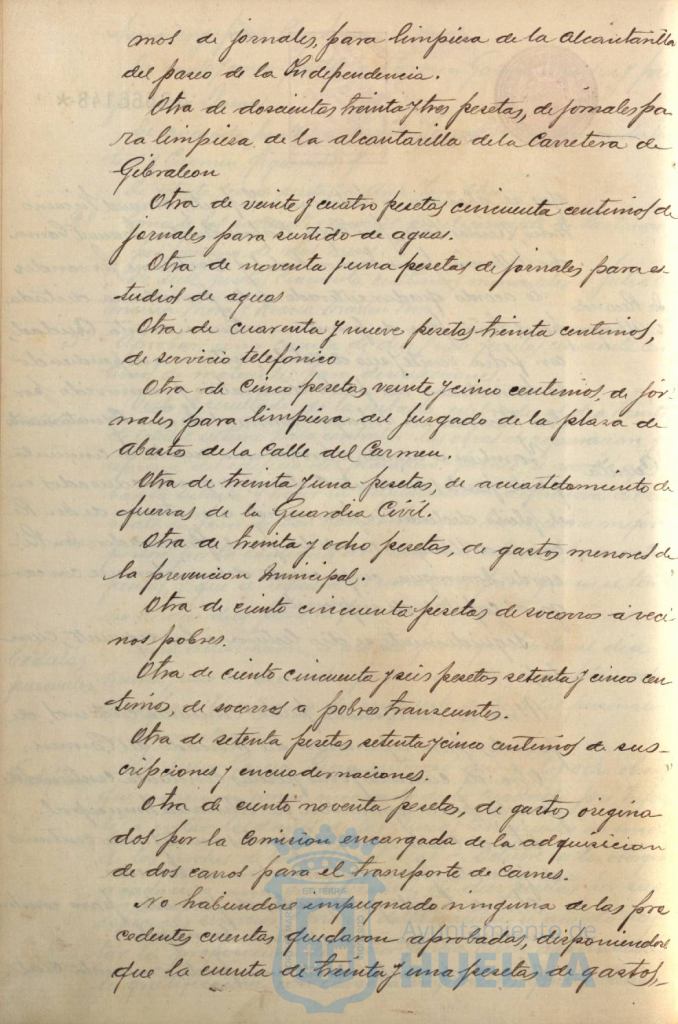 mos de jornales, para limpiesa de la alcantarilla
del paseo de la Independencia.
Otra de doscientas treinta y tres pesetas, de jornales pa-
ra limpiesa de la alcantarilla de la Carretera de
Gibraleon
Otra de veinte y cuatro pesetas cincuenta centimos de
jornales para surtido de aguas.
Otra de noventa y una pesetas de jornales para es-
tudios de aguas
Otra de cuarenta y nueve pesetas treinta centimos,
de servicio telefónico
Otra de cinco pesetas veinte y cinco centimos, de jor-
nales para limpiesa del Jusgado de la plasa de
abasto de la Calle del Carmen.
Otra de treinta y una pesetas, de acuartelamiento de
fuersas de la Guardia Civil.
Otra de treinta y ocho pesetas, de gastos menores de
la prevencion Municipal.
Otra de ciento cincuenta pesetas de socorros a veci-
nos pobres.
Otra de ciento cincuenta y seis pesetas setenta y cinco cen-
timos, de socorros a pobres transeuntes.
Otra de setenta pesetas setenta y cinco centimos de sus-
cripciones y encuadernaciones.
Otra de ciento noventa pesetas, de gastos origina
dos por la Comision encargada de la adquisicion
de dos carros para el transporte de Carnes.
No habiendose impugnado ninguna de las pre
cedentes cuentas quedaron aprobadas, disponiendose
que la cuenta de treinta y una pesetas de gastos,
Ayuntamiento de
HUELVA